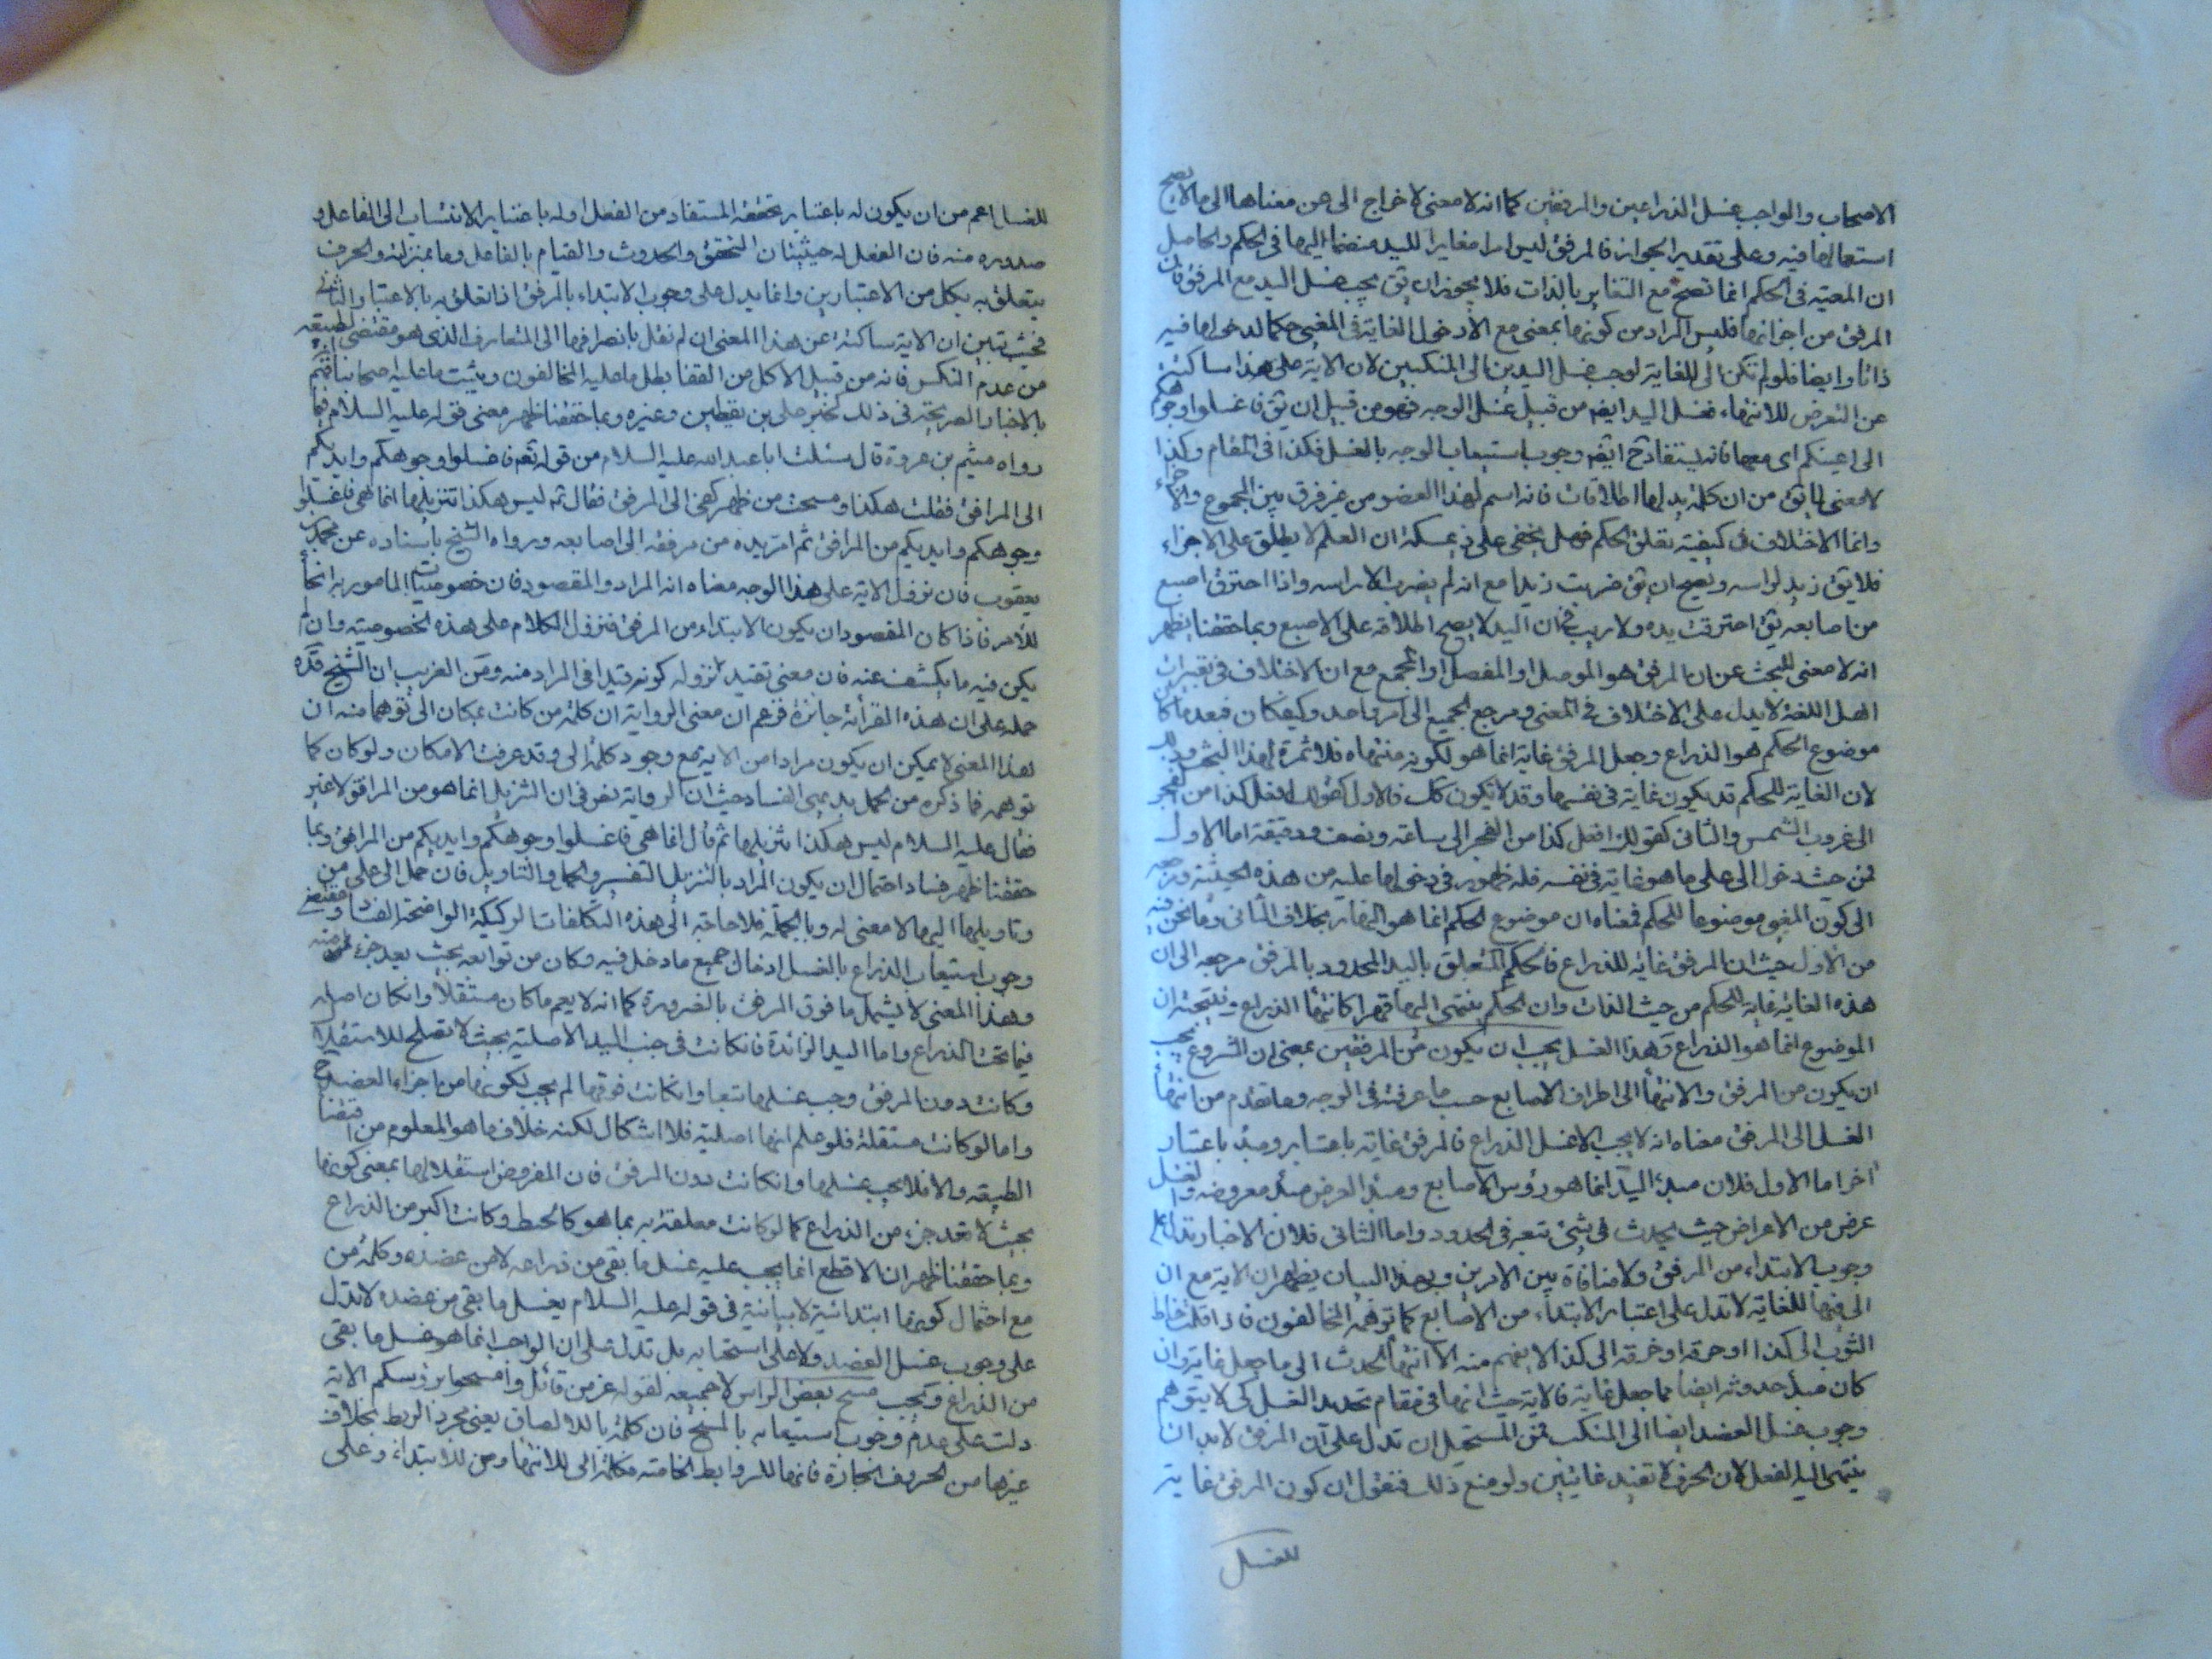 الاصحاب والواجب غسل الذراعين والمرفقين كما انه لا معنى لاخراج الى عن معناها الى ما لا يصح
استعمالها فيه وعلى تقدير الجواز فالمرفق ليس امرا مغايرا لليد منضما اليها في الحكم والحاصل
ان المعية في الحكم انما تصح مع التغاير بالذات فلا يجوز ان يق يجب غسل اليد مع المرفق فان
المرفق من اجزائها فليس المراد من كونها بمعنى مع الا دخول الغاية في المغيى حكما لدخولها فيه
ذاتا وايضا فلو لم تكن الى للغاية لوجب غسل اليدين الى المنكبين لان الاية على هذا ساكتة
عن التعرض للانتهاء فغسل اليد ايضا من قبيل غسل الوجه فهو من قبيل ان يق فاغسلوا وجوهكم
الى اعينكم اى معها فانه يستفاد ح ايضا وجوب استيعاب الوجه بالغسل فكذا في المقام وكذا
لا معنى لما يق من ان كلمة يد لها اطلاقات فانه اسم لهذا العضو من غير فرق بين المجموع والاجزاء
وانما الاختلاف في كيفية تعلق الحكم فهل يخفى على ذي مسكة ان العلم لا يطلق على الاجزاء
فلا يق زيد لراسه ويصح ان يق ضربت زيدا مع انه لم يضرب الا راسه واذا احترق اصبع
من اصابعه يق احترقت يده ولا ريب في ان اليد لا يصح اطلاقه على الاصبع وبما حققنا يظهر
انه لا معنى للبحث عن ان المرفق هو الموصل او المفصل او المجمع مع ان الاختلاف في تعبيرات
اهل اللغة لا يدل على الاختلاف في المعنى ومرجع الجميع الى امر واحد وكيفكان فبعد ما كان
موضوع الحكم هو الذراع وجعل المرفق غاية انما هو لكونه منتهاه فلا ثمرة لهذا البحث وذلك
لان الغاية للحكم قد يكون غاية في نفسها وقد لا يكون كك فالاول كقولك افعل كذا من الفجر
الى غروب الشمس والثاني كقولك افعل كذا من الفجر الى ساعة ونصف ودقيقة اما الاول
فمن حيث دخول الى على ما هو غاية في نفسه فله ظهور في دخولها عليه من هذه الحيثية ومرجعه
الى كون المغيى موضوعا للحكم فمعناه ان موضوع الحكم انما هو المغيا به بخلاف الثاني وما نحن فيه
من الاول حيث ان المرفق غاية للذراع فالحكم المتعلق باليد المحدود بالمرفق مرجعه الى ان
هذه الغاية غاية للحكم من حيث الذات وان الحكم ينتهى اليها قهرا كانتهاء الذراع ونتيجته ان
الموضوع انما هو الذراع وهذا الغسل يجب ان يكون من المرفقين بمعنى ان الشروع يجب
ان يكون من المرفق والانتهاء الى اطراف الاصابع حسب ما عرفته في الوجه وما تقدم من انتهاء
الغسل الى المرفق معناه انه لا يجب الا غسل الذراع فالمرفق غاية باعتبار ومبدء باعتبار
اخر اما الاول فلان مبدء اليد انما هو رؤس الاصابع ومبدء العرض مبدء معروضه والغسل
عرض من الاعراض حيث يحدث في شئ يتبعه في الحدود واما الثاني فلان الاخبار تدل على
وجوب الابتداء من المرفق ولا منافاة بين الامرين وبهذا البيان يظهر ان الاية مع ان
الى فيها للغاية لا تدل على اعتبار الابتداء من الاصابع كما توهمه المخالفون فاذا قلت خاط
الثوب الى كذا او حرقه او خرقه الى كذا لا يفهم منه الا انتهاء الحدث الى ما جعل غاية وان
كان مبدء حدوثه ايضا مما جعل غاية فالاية حيث انها في مقام تحديد الغسل كى لا يتوهم
وجوب غسل العضد ايضا الى المنكب فمن المستحيل ان تدل على ان المرفق لا بد ان
ينتهى اليه الفعل لان الحرف لا تفيد غايتين ولو منع ذلك فنقول ان كون المرفق غاية
للغسل
للغسل اعم من ان يكون له باعتبار تحققه المستفاد من الفعل او له باعتبار الانتساب الى الفاعل و
صدوره منه فان الفعل له حيثيتان التحقق والحدوث والقيام بالفاعل وما بمنزلته والحرف
يتعلق به بكل من الاعتبارين وانما يدل على وجوب الابتداء بالمرفق اذا تعلق به بالاعتبار الثاني
فحيث تبين ان الاية ساكتة عن هذا المعنى ان لم نقل بانصرافها الى المتعارف الذى هو مقتضى الطبيعه
من عدم النكس فانه من قبيل الاكل من القفا بطل ما عليه المخالفون ويثبت ما عليه اصحابنا
بالاخبار الصريحة في ذلك كخبر على بن يقطين وغيره وبما حققنا ظهر معنى قوله عليه السلام فيما
رواه هيثم بن عروة قال سئلت ابا عبد الله عليه السلام من قوله تعم فاغسلوا وجوهكم وايديكم
الى المرافق فقلت هكذا ومسحت من ظهر كفى الى المرفق فقال ثم ليس هكذا تنزيلها انما هى فاغسلوا
وجوهكم وايديكم من المرافق ثم امر يده من مرفقه الى اصابعه ورواه الشيخ باسناده عن محمد بن
يعقوب فان نزول الاية على هذا الوجه معناه انه المراد والمقصود فان خصوصيات المامور به انحاء
للامر فاذا كان المقصود ان يكون الابتداء من المرفق فنزول الكلام على هذه الخصوصية وان لم
يكن فيه ما يكشف عنه فان معنى تقييد نزوله كونه قيدا في المراد منه ومن الغريب ان الشيخ قده
حمله على ان هذه القرائة جائزة فزعم ان معنى الرواية ان كلمة من كانت بمكان الى توهما منه ان
هذا المعنى لا يمكن ان يكون مرادا من الاية مع وجود كلمة الى وقد عرفت الامكان ولو كان كما
توهمه فما ذكره من الحمل بديهى الفساد حيث ان الرواية نص في ان التنزيل انما هو من المرافق لا غير
فقال عليه السلام ليس هكذا تنزيلها ثم قال انما هى فاغسلوا وجوهكم وايديكم من المرافق وبما
حققنا ظهر فساد احتمال ان يكون المراد بالتنزيل التفسير والحمل والتاويل فان حمل الى على من
وتاويلها اليها لا معنى له وبالجملة فلا حاجة الى هذه التكلفات الركيكة الواضحة الفساد ومقتضى
وجوب استيعاب الذراع بالغسل ادخال جميع ما دخل فيه وكان من توابعه بحيث يعد جزء منه
وهذا المعنى لا يشمل ما فوق المرفق بالضرورة كما انه لا يعم ما كان مستقلا وانكان اصله
فيما تحت الذراع واما اليد الزائدة فانكانت في جنب اليد الاصلية بحيث لا تصلح للاستقلال
وكانت دون المرفق وجب غسلها تبعا وانكانت فوقها لم يجب لكونها من اجزاء العضد ح
واما لو كانت مستقلة فلو علم انها اصلية فلا اشكال لكنه خلاف ما هو المعلوم من اقتضاء
الطبيعه والا فلا يجب غسلها وانكانت دون المرفق فان المفروض استقلالها بمعنى كونها
بحيث لا تعد جزء من الذراع كما لو كانت معلقة به بما هو كالخيط وكانت اكبر من الذراع
وبما حققنا ظهر ان الاقطع انما يجب عليه غسل ما بقى من ذراعه لا من عضده وكلمة من
مع احتمال كونها ابتدائية لا بيانية في قوله عليه السلام يغسل ما بقى من عضده لا تدل
على وجوب غسل العضد ولا على استحبابه بل تدل على ان الواجب انما هو غسل ما بقى
من الذراع ويجب مسح بعض الراس لا جميعه لقوله عز من قائل وامسحوا برؤسكم الاية
دلت على عدم وجوب استيعابه بالمسح فان كلمة با للالصاق يعنى مجرد الربط بخلاف
غيرها من الحروف الجارة فانها للروابط الخاصة فكلمة الى للانتهاء ومن للابتداء وعلى